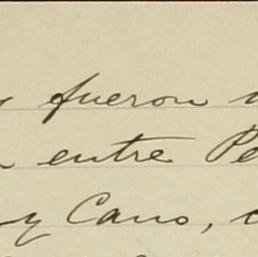 fueron
entre Pe
y Cano,